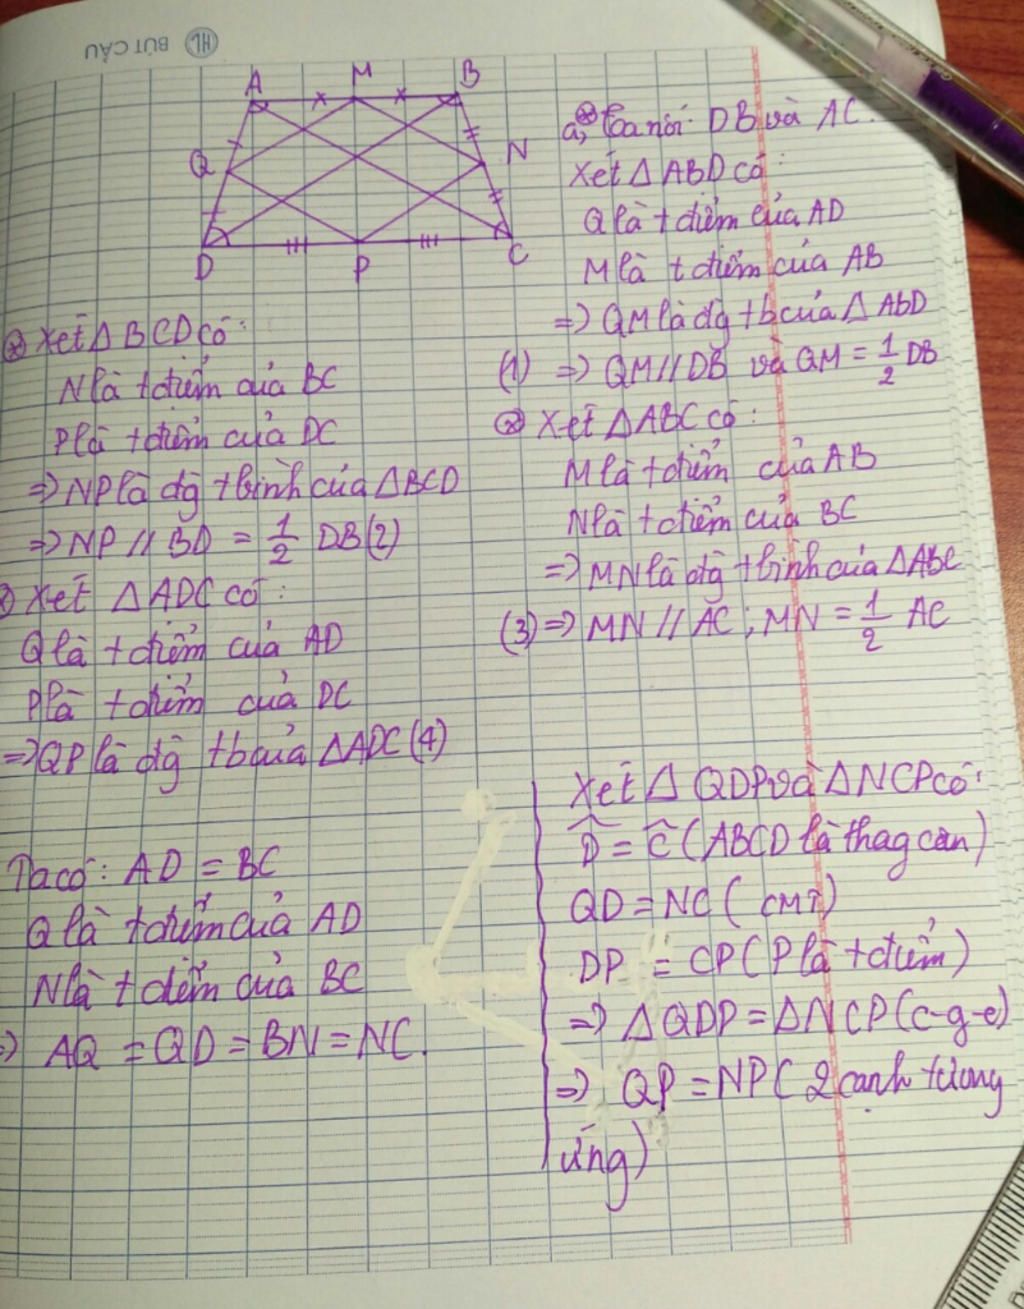 HL BÚT CÂU
A M B
Q N
D P C
a, Ta nối DB và AC.
Xét Δ ABD có:
Q là tđiểm của AD
M là tđiểm của AB
=> QM là đg tb của Δ AbD
(1) => QM // DB và QM = 1/2 DB
Xét Δ ABC có:
M là tđiểm của AB
N là tđiểm của BC
=> MN là đg tbình của Δ ABC
(3) => MN // AC ; MN = 1/2 AC
Xét Δ BCD có:
N là tđiểm của BC
P là tđiểm của DC
=> NP là đg tbình của Δ BCD
=> NP // BD = 1/2 DB (2)
Xét Δ ADC có:
Q là tđiểm của AD
P là tđiểm của DC
=> QP là đg tb của Δ ADC (4)
Ta có: AD = BC
Q là tđiểm của AD
N là tđiểm của BC
=> AQ = QD = BN = NC.
Xét Δ QDP và Δ NCP có:
D̂ = Ĉ (ABCD là thag cân)
QD = NC ( cmt)
DP = CP (P là tđiểm)
=> Δ QDP = Δ NCP (c-g-c)
=> QP = NP ( 2 cạnh tương
ứng)